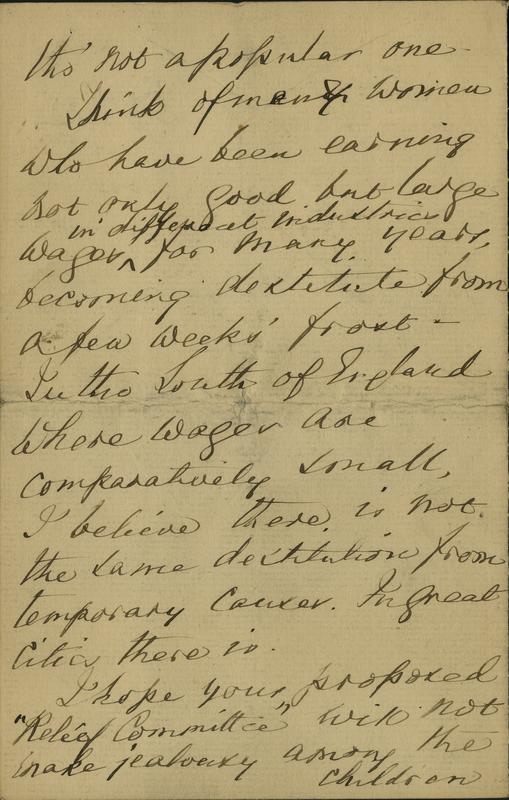 tho' not a popular one -
Think of many women
who have been earning
not only good but large
in different industries
wages ^ for many years,
becoming destitute from
a few weeks' frost -
In the South of England
where wages are
comparatively small,
I believe there is not
the same destitution from
temporary causes. In great
cities there is.
I hope your proposed
"Relief Committee" will not
make jealousy among the
children